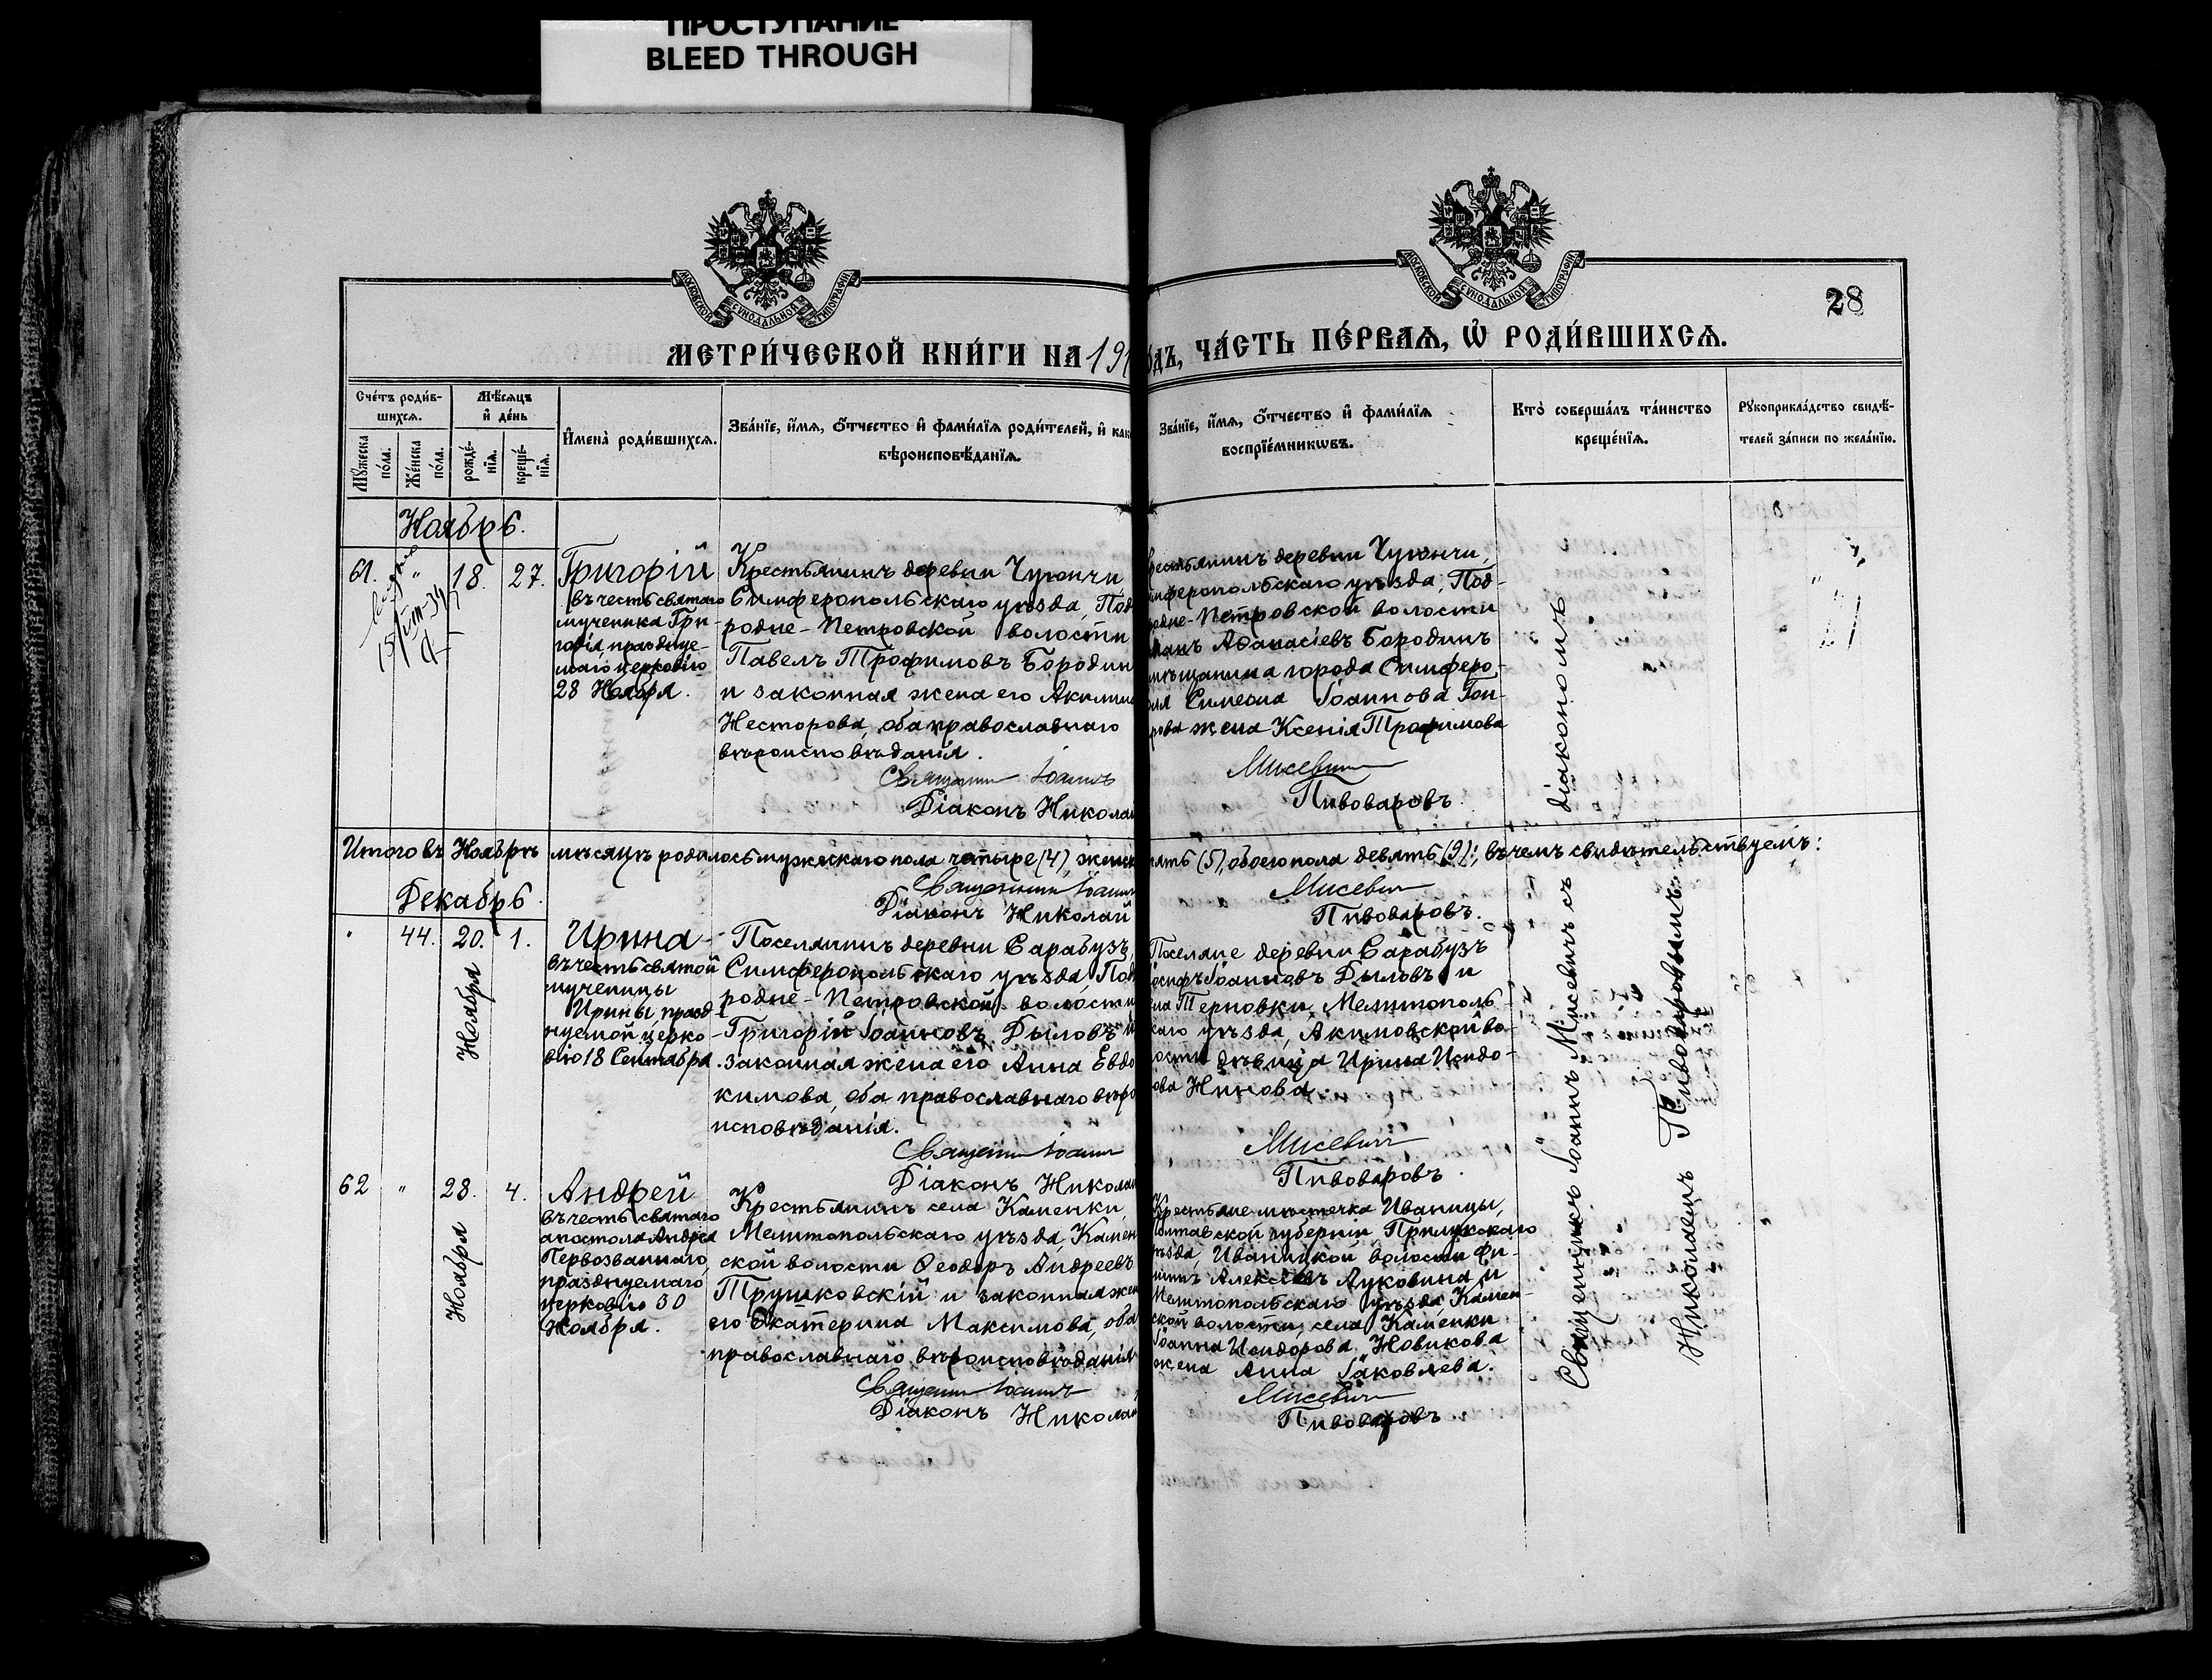 ПРОСТУПАНИЕ
BLEED THROUGH
МОСКОВСКОЙ СѴНОДАЛЬНОЙ ТИПОГРАФІИ
МОСКОВСКОЙ СѴНОДАЛЬНОЙ ТИПОГРАФІИ
28
МЕТРИ́ЧЕСКОЙ КНИ́ГИ НА 191
ѻдъ, ЧА́СТЬ ПЕ́РВАѦ, Ѽ РОДИ́ВШИХСѦ.
Сче́тъ роди́в-
шихсѧ.
Мꙋ́жеска по́ла.
Же́нска по́ла.
Мѣ́сѧцъ
и҆ де́нь
рожде́-
нїѧ.
креще́-
нїѧ.
И҆мена̀ роди́вшихсѧ.
Зва́нїе, и҆́мѧ, ѻ҆́тчество и҆ фами́лїѧ роди́телей, и҆ как
вѣроисповѣ́данїѧ.
Зва́нїе, и҆́мѧ, ѻ҆́тчество и҆ фами́лїѧ
воспрїе́мникѡвъ.
Кто̀ соверша́лъ та́инство
креще́нїѧ.
Рꙋкоприкла́дство свидѣ́-
телей за́писи по жела́нїю.
Ноябрь.
61. " 18. 27.
15/VIII-34
Григорій
въ честь святаго
мученика Гри-
горія, празднуе-
маго церковію
28 Ноября.
Крестьянинъ деревни Чуюнчи
Симферопольскаго уѣзда, Под
родне-Петровской волости
Павелъ Трофимовъ Бородин
и законная жена его Акилин
Несторова, оба православнаго
вѣроисповѣданія.
Священни Іоаннъ
Діаконъ Николай
рестьянинъ деревни Чуюнчи,
имферопольскаго уѣзда, Под-
родне-Петровской волости
манъ Аѳанасіевъ Бородинъ
мѣщанина города Симферо-
оля Симеона Іоаннова Гон-
рова жена Ксенія Трофимова
Мисевич
Пивоваровъ.
Итого въ Ноябрѣ мѣсяцѣ родилось мужескаго пола четыре (4), женск
ять (5), обоего пола девять (9); въ чемъ свидѣтельствуемъ:
Священникъ Іоаннъ
Діаконъ Николай
Мисевич
Пивоваровъ.
Декабрь.
" 44. 20. 1.
Ноября
Ирина
въ честь святой
мученицы
Ирины, празд-
нуемой церко-
вію 18 Сентября.
Поселянинъ деревни Сарабузъ,
Симферопольскаго уѣзда, Под
родне-Петровской волости
Григорій Іоанновъ Дыловъ и
законная жена его Анна Евдо
кимова, оба православнаго вѣро
исповѣданія.
Священни Іоанн
Діаконъ Никола
Поселяне деревни Сарабузъ
осифъ Іоанновъ Дыловъ и
ела Терновки, Мелитополь-
скаго уѣзда, Акимовской во-
лости дѣвица Ирина Исидо-
ова Нинова.
Мисевич
Пивоваровъ.
62 " 28. 4.
Ноября
Андрей
въ честь святаго
апостола Андрея
Первозваннаго,
празднуемаго
церковію 30
Ноября.
Крестьянинъ села Каменки,
Мелитопольскаго уѣзда, Камен
ской волости Ѳеодоръ Андреевъ
Трушковскій и законная жен
его Екатерина Максимова, оба
православнаго вѣроисповѣданія
Священни Іоаннъ
Діаконъ Николай
Крестьяне мѣстечка Иваницы,
Полтавской губерніи, Прилукскаго
уѣзда, Иваницкой волости Фи-
иппъ Алексѣевъ Луковина и
Мелитопольскаго уѣзда, Камен-
ской волости, села Каменки
Іоанна Исидорова Новикова
жена Анна Іаковлева.
Мисевич
Пивоваровъ
Священникъ Іоаннъ Мисевичъ съ діакономъ
Николаемъ Пивоваровымъ.